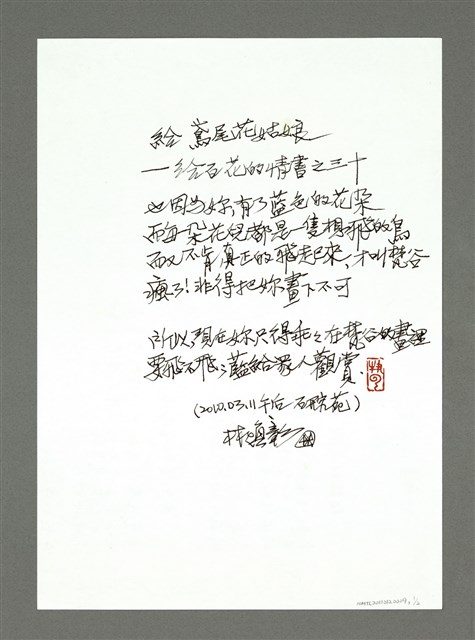 給 鳶尾花姑娘
—給百花的情書之三十
也因為妳有了藍色的花朵
而每一朵花兒都是一隻想飛的鳥
而又不肯真正的飛起來,才叫梵谷
瘋了!非得把妳畫下不可
所以現在妳只得乖乖在梵谷的畫裡
要飛不飛,藍給眾人觀賞.
(2010.03.11午后 石牌苑)
林煥彰